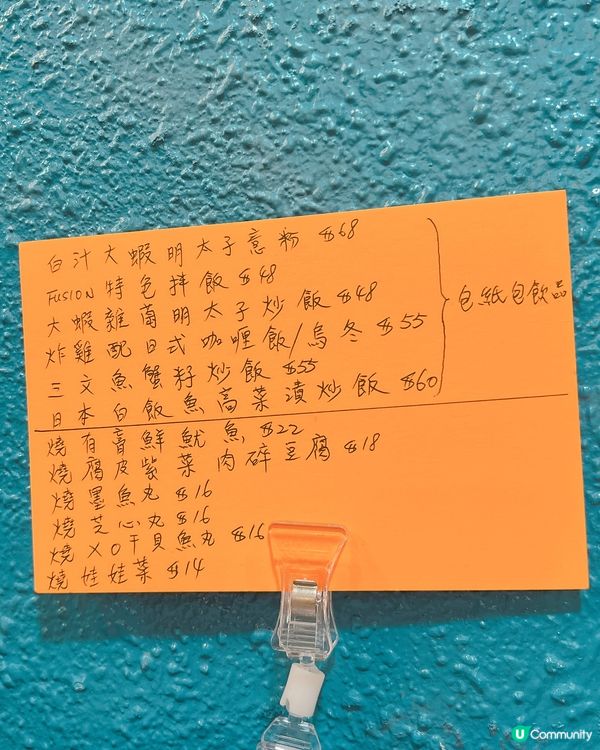 白汁大蝦明太子意粉 $68
FUSION 特色拌飯 $48
大蝦雜菌明太子炒飯 $48
炸雞配日式咖喱飯/烏冬 $55
三文魚蟹籽炒飯 $55
日本白飯魚高菜漬炒飯 $60
包紙包飲品
燒有膏鮮魷魚 $22
燒腐皮紫菜肉碎豆腐 $18
燒墨魚丸 $16
燒芝心丸 $16
燒XO干貝魚丸 $16
燒娃娃菜 $14
U Community